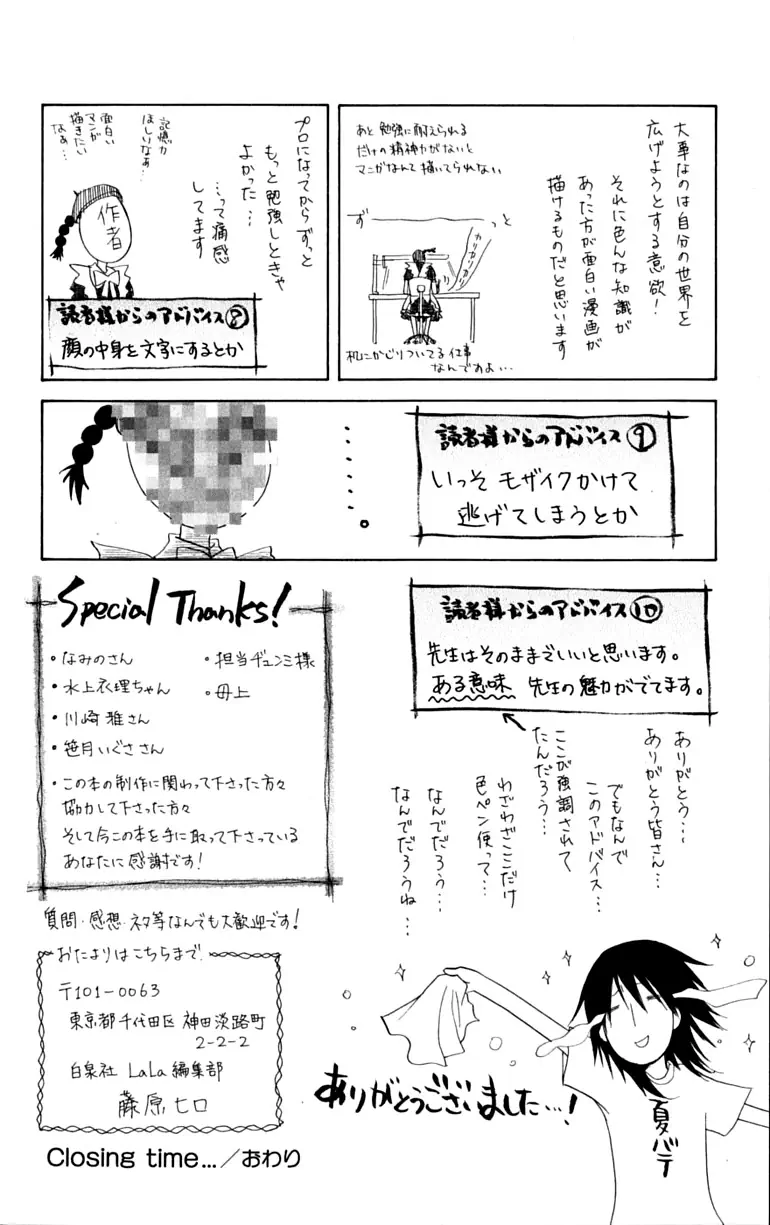 大事なのは自分の世界を
広げようとする意欲!
それに色んな知識が
あった方が面白い漫画が
描けるものだと思います
あと勉強に耐えられる
だけの精神力がないと
マンガなんて描いてられない
ず
っと
カリカリカリカリ
机にかじりついてる仕事
なんですよ…
プロになってからずっと
もっと勉強しときゃ
よかった…
…って痛感
してます
記憶力
ほしいなぁ…
面白い
マンガ
描きたい
なぁ…
作者
読者様からのアドバイス⑧
顔の中身を文字にするとか
読者様からのアドバイス⑨
いっそモザイクかけて
逃げてしまうとか
・・・・・・。
読者様からのアドバイス⑩
先生はそのままでいいと思います。
ある意味 先生の魅力がでてます。
ありがとう…
ありがとう皆さん…
でもなんで
このアドバイス…
ここが強調されて
たんだろう…
わざわざここだけ
色ペン使って…
なんでだろう…
なんでだろうね…
Special Thanks!
・なみのさん
・水上衣理ちゃん
・川崎雅さん
・笹月いぐささん
・担当ヂュンミ様
・母上
・この本の制作に関わって下さった方々
協力して下さった方々
そして今この本を手に取って下さっている
あなたに感謝です!
質問・感想・ネタ等なんでも大歓迎です!
おたよりはこちらまで
〒101-0063
東京都千代田区神田淡路町
2-2-2
白泉社 LaLa編集部
藤原ヒロ
ありがとうございました…!
夏バテ
Closing time…/おわり